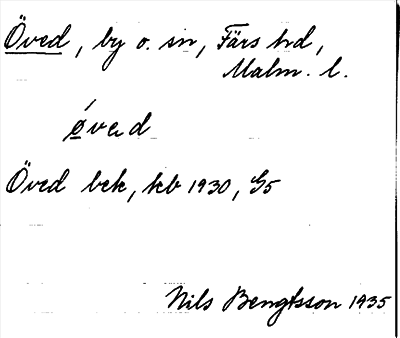 Öved, by o. sn, Färs hd,
Malm. l.
øved
Öved bek, kb 1930, G5
Nils Bengtsson 1935